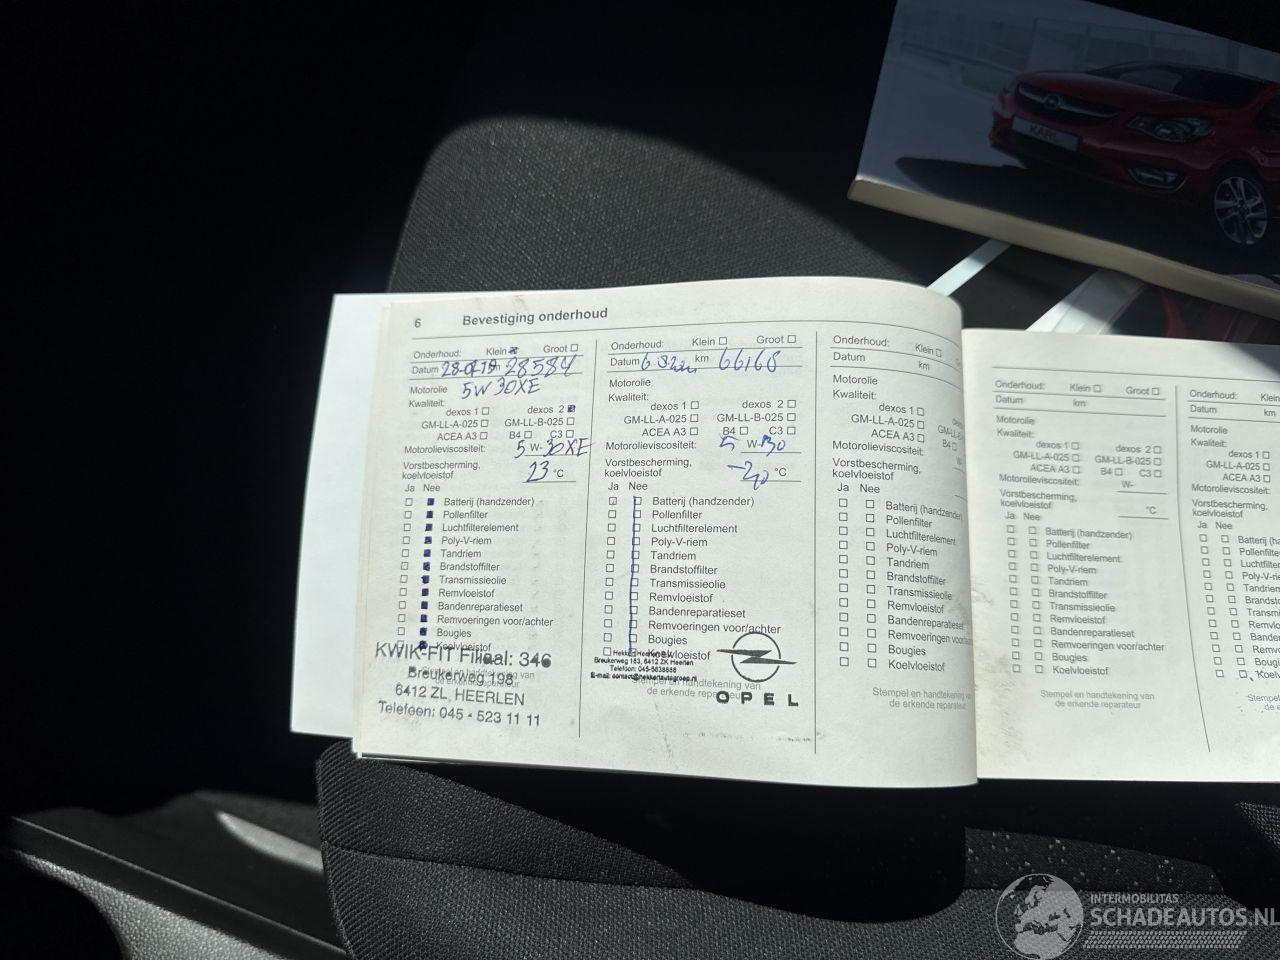 KARL
6 Bevestiging onderhoud
Onderhoud: Klein Groot
Datum 28-01-19 km 28584
Motorolie 5W30XE
Kwaliteit:
dexos 1 dexos 2
GM-LL-A-025 GM-LL-B-025
ACEA A3 B4 C3
Motorolieviscositeit: 5 W-30XE
Vorstbescherming, koelvloeistof 23 °C
Ja Nee
Batterij (handzender)
Pollenfilter
Luchtfilterelement
Poly-V-riem
Tandriem
Brandstoffilter
Transmissieolie
Remvloeistof
Bandenreparatieset
Remvoeringen voor/achter
Bougies
Koelvloeistof
KWIK-FIT Filiaal: 346
Stempel en handtekening van
de erkende reparateur
Breukerweg 198
6412 ZL, HEERLEN
Telefoon: 045 - 523 11 11
Onderhoud: Klein Groot
Datum km 66168
Motorolie
Kwaliteit:
dexos 1 dexos 2
GM-LL-A-025 GM-LL-B-025
ACEA A3 B4 C3
Motorolieviscositeit: 5 W-30
Vorstbescherming, koelvloeistof °C
Ja Nee
Batterij (handzender)
Pollenfilter
Luchtfilterelement
Poly-V-riem
Tandriem
Brandstoffilter
Transmissieolie
Remvloeistof
Bandenreparatieset
Remvoeringen voor/achter
Bougies
Koelvloeistof
Breukerweg 183, 6412 ZK Heerlen
Telefoon: 045-5638888
E-mail: contact@hekkertautogroep.nl
Stempel en handtekening van
de erkende reparateur
OPEL
Onderhoud: Klein
Datum km
Motorolie
Kwaliteit:
dexos 1
GM-LL-A-025
ACEA A3
Motorolieviscositeit:
Vorstbescherming,
koelvloeistof
Ja Nee
Batterij (handzender)
Pollenfilter
Luchtfilterelement
Poly-V-riem
Tandriem
Brandstoffilter
Transmissieolie
Remvloeistof
Bandenreparatieset
Remvoeringen voor/achter
Bougies
Koelvloeistof
Stempel en handtekening van
de erkende reparateur
Onderhoud: Klein Groot
Datum km
Motorolie
Kwaliteit:
dexos 1 dexos 2
GM-LL-A-025 GM-LL-B-025
ACEA A3 B4 C3
Motorolieviscositeit: W-
Vorstbescherming,
koelvloeistof °C
Ja Nee
Batterij (handzender)
Pollenfilter
Luchtfilterelement
Poly-V-riem
Tandriem
Brandstoffilter
Transmissieolie
Remvloeistof
Bandenreparatieset
Remvoeringen voor/achter
Bougies
Koelvloeistof
Stempel en handtekening van
de erkende reparateur
Onderhoud: Klein
Datum
Motorolie
Kwaliteit:
dexos 1
GM-LL-A-025
ACEA A3
Motorolieviscositeit:
Vorstbescherming,
koelvloeistof
Ja Nee
INTERMOBILITAS
SCHADEAUTOS.NL